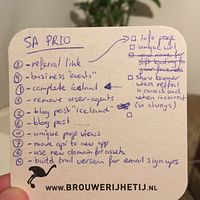 SA PRIO
3 - referral link
4 - business "events"
1 - complete iceland
5 - remove user-agents
2 - blog post "iceland"
6 - blog post ....
10 - unique page views
7 - move api to new app
8 - use new domain for assets
9 - build email version for email signups
□ info page
□ unique url
your friends
□ show banner
when refferal
is correct and
when incorrect
(is always)
WWW.BROUWERIJHETIJ.NL